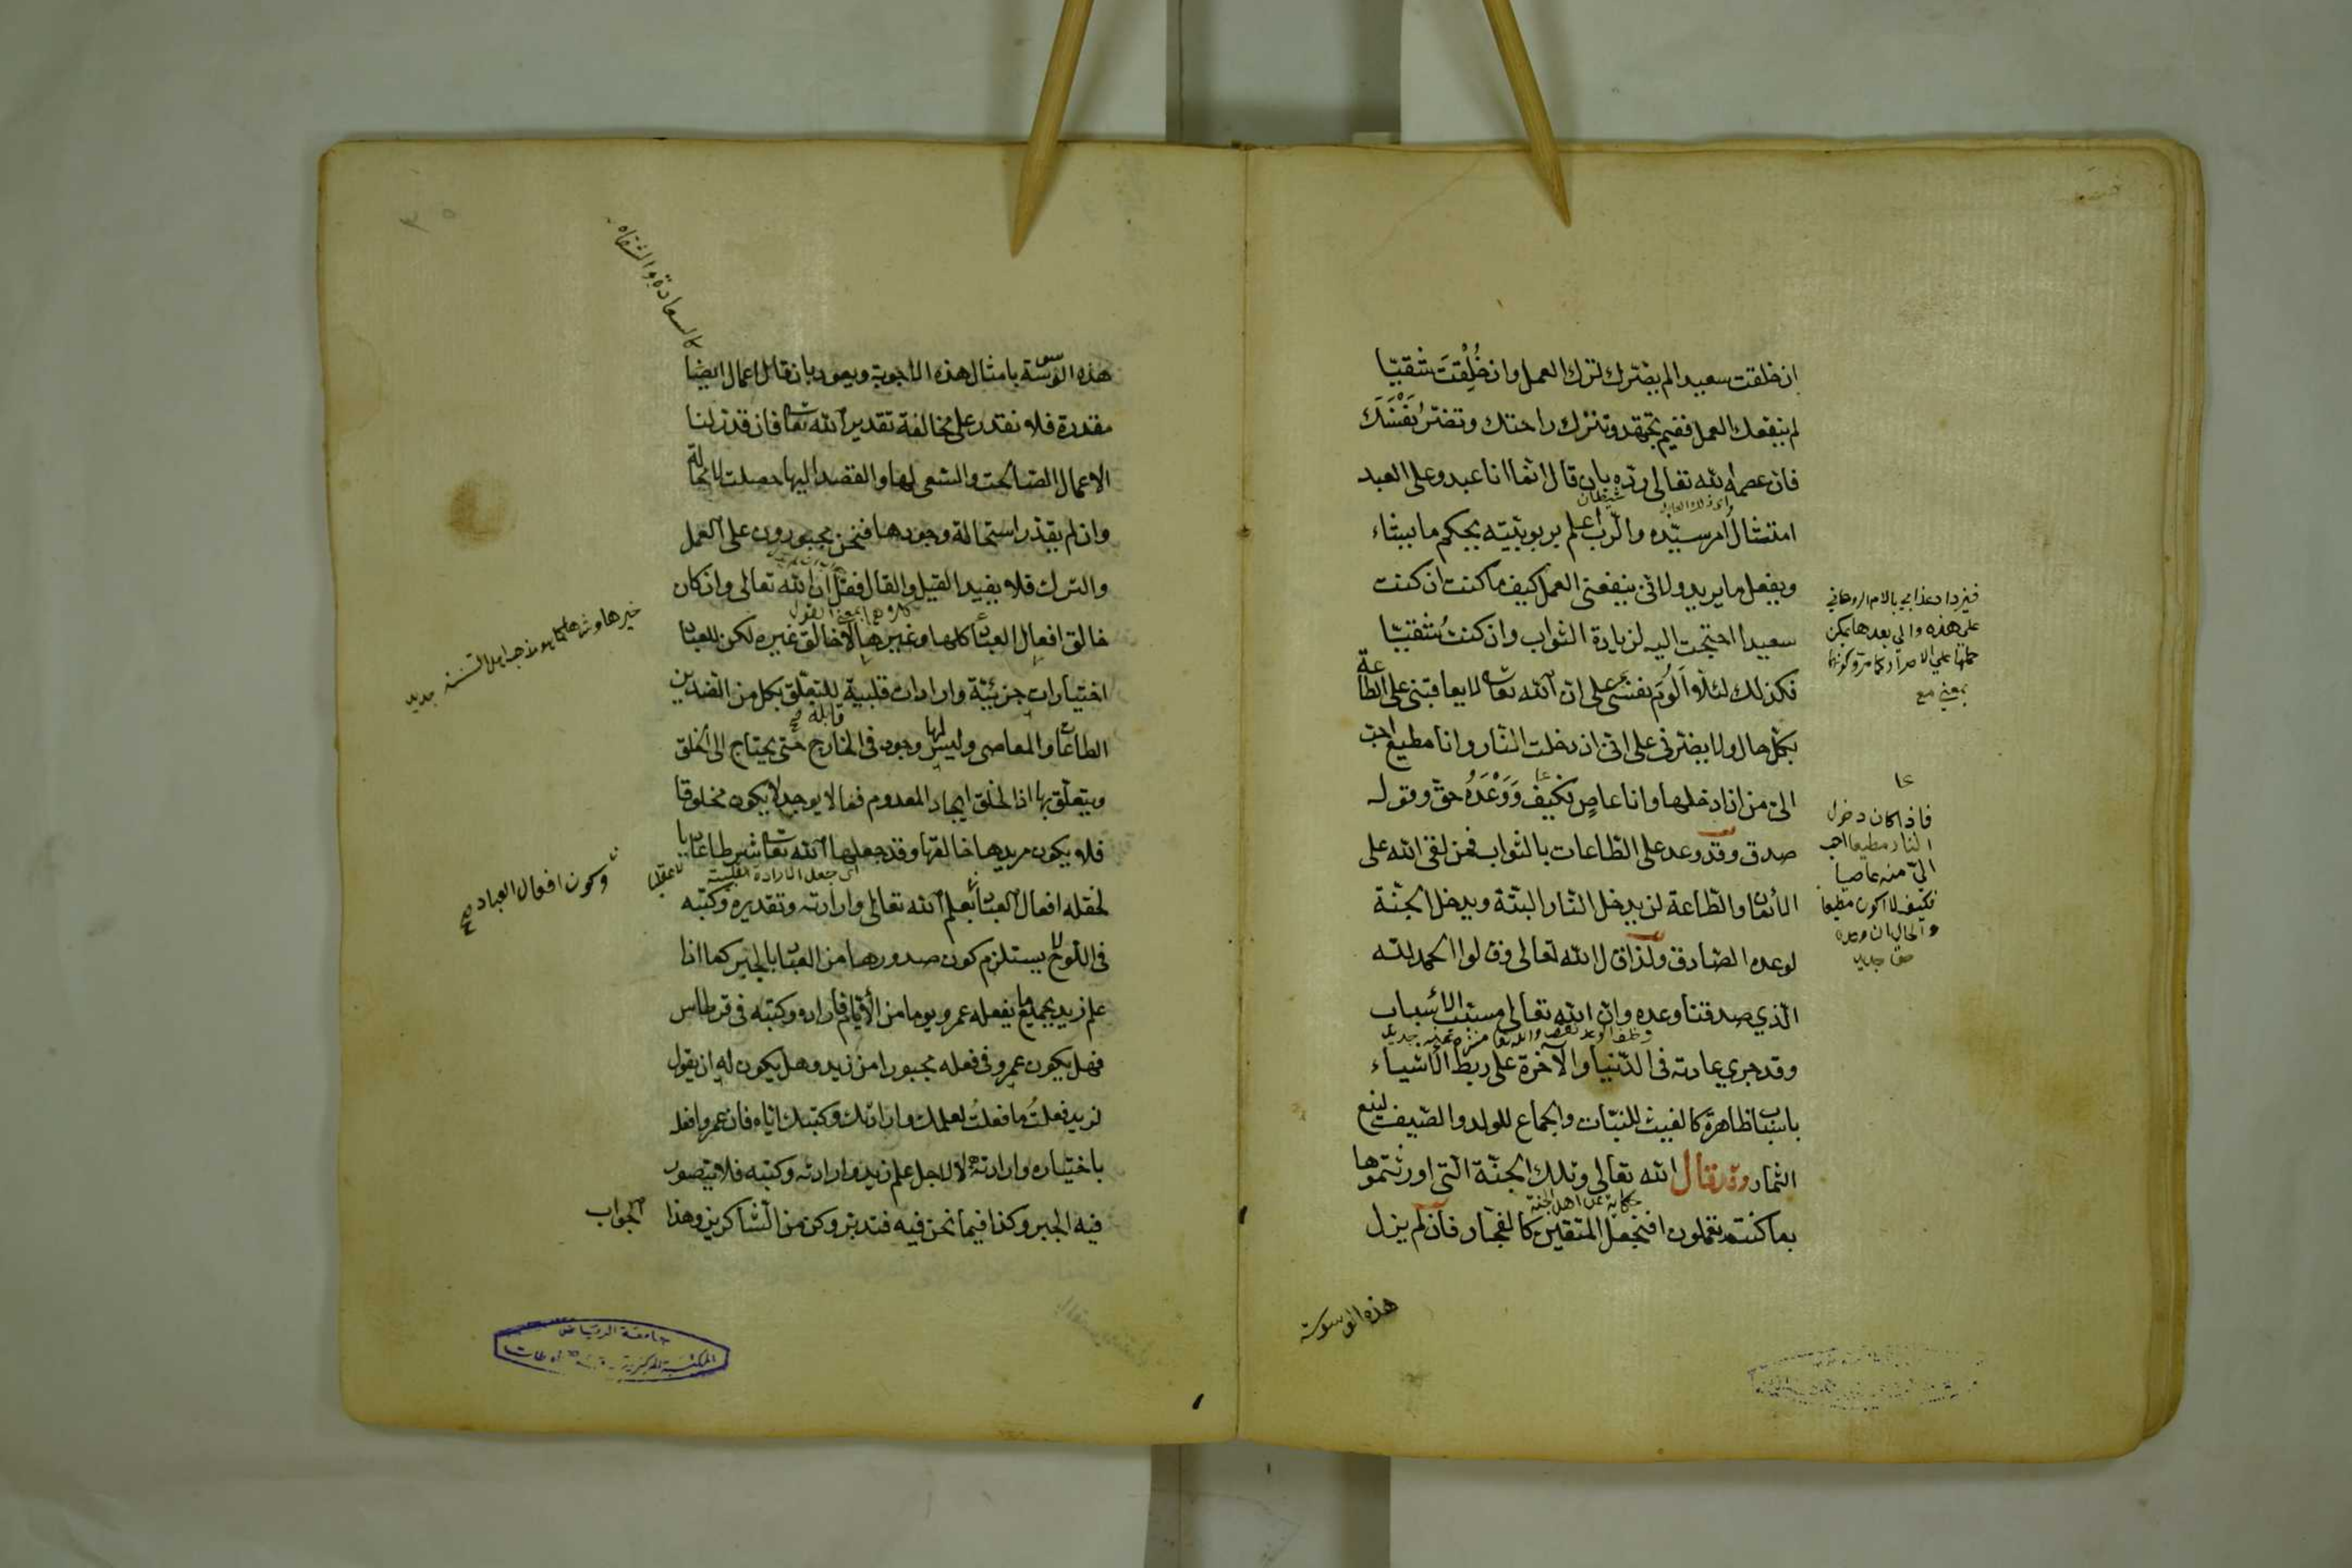 ان خلقت سعيدا لم يضرك ترك العمل وان خُلِقتَ شقيّا
لم ينفعك العمل ففيم تجتهد وتترك راحتك وتضر نَفْسَكَ
فان عصمه الله تعالى ردّه بان قال انما انا عبد وعلى العبد
امتثال امر سيّده والرّب اعلم بربوبيّته يحكم ما يشاء
ويفعل ما يريد ولانّى ينفعنى العمل كيف ما كنت ان كنت
سعيدا احتجت اليه لزيادة الثواب وان كنت شقيّا
فكذلك لئلا اَلُومَ نفسى على ان الله تعا لا يعاقبنى على الطاعة
بكل حال ولا يضرنى على انّى ان دخلت النّار وانا مطيع احبّ
الىّ من ان ادخلها وانا عاصٍ فكيف وَوَعْدَهُ حقّ وقوله
صدق وقد وعد على الطّاعات بالثواب فمن لقى الله على
الايمان والطّاعة لن يدخل النّار البتّة ويدخل الجنّة
لوعده الصّادق ولذا قال الله تعالى وقالوا الحمد لله
الّذي صدقنا وعده وان الله تعالى مسبّب الاسباب
وقد جرى عادته فى الدّنيا والآخرة على ربط الاشياء
باسباب ظاهرة كالغيث للنبّات والجماع للولد والصّيف لينع
الثمار وقد قال الله تعالى وتلك الجنّة الّتى اورثتموها
بما كنتم تعملون افنجعل المتقين كالفجّار فان لم يزل
هذه الوسوسة
شيطان
حكاية عن اهل الجنّة
فيزداد عذابي بالالام الروحانى
على هذه والى بعدها يمكن
بمعنى مع
فاذا كان دخول
النار مطيعا احب
الىّ منه عاصيا
فكيف لا اكون مطيعا
والحال ان وعده
حق جديد
هذه الوسوسة بامثال هذه الاجوبة ويعود بان تقال اعمال ايضا
مقدرة فلا نقدر على مخالفة تقدير الله تعا فان قدّر لنا
الاعمال الصّالحة والسّعى لها والقصد اليها حصلت لا محالة
وان لم يقدّر استحالة وجودها فنحن مجبورون على العمل
والترك فلا يفيد القيل والقال فقل ان الله تعالى وان كان
خالق افعال العباد كلها وغيرها لا خالق غيره لكن للعباد
اختيارات جزئيّة وارادات قلبية للتعلّق بكل من الضدين
الطاعات والمعاصى وليس لها وجود فى الخارج حتى يحتاج الى الخلق
ويتعلّق بها اذ الخلق ايجاد المعدوم فما لا يوجد لا يكون مخلوقا
فلا يكون مريدها خالقها وقد جعلها الله تعا شرطا عاديا
لخلقه افعال العباد بعلم الله تعالى وارادته وتقديره وكتبه
فى اللوح لا يستلزم كون صدورها من العباد بالجبر كما اذا
علم زيد بجميع ما يفعله عمرو يوما من الأيّام فاراده وكتبه فى قرطاس
فهل يكون عمرو فى فعله مجبورا من زيد وهل يكون له ان يقول
لزيد فعلتُ ما فعلتُ لعلمك وارادتك وكتبك ايّاه فان عمروا فعله
باختياره وارادته لا لاجل علم زيد وارادته وكتبه فلا يتصور
فيه الجبر وكذا فيما نحن فيه فتدبّر وكن من الشّاكرين وهذا الجواب
كالسعادة والشقاوة
كلاهما بمعنى القول
قابلة صح
اى جعل الارادة القلبية
وكون افعال العباد صح
جامعة الرياض
المكتبة المركزية - قسم المخطوطات